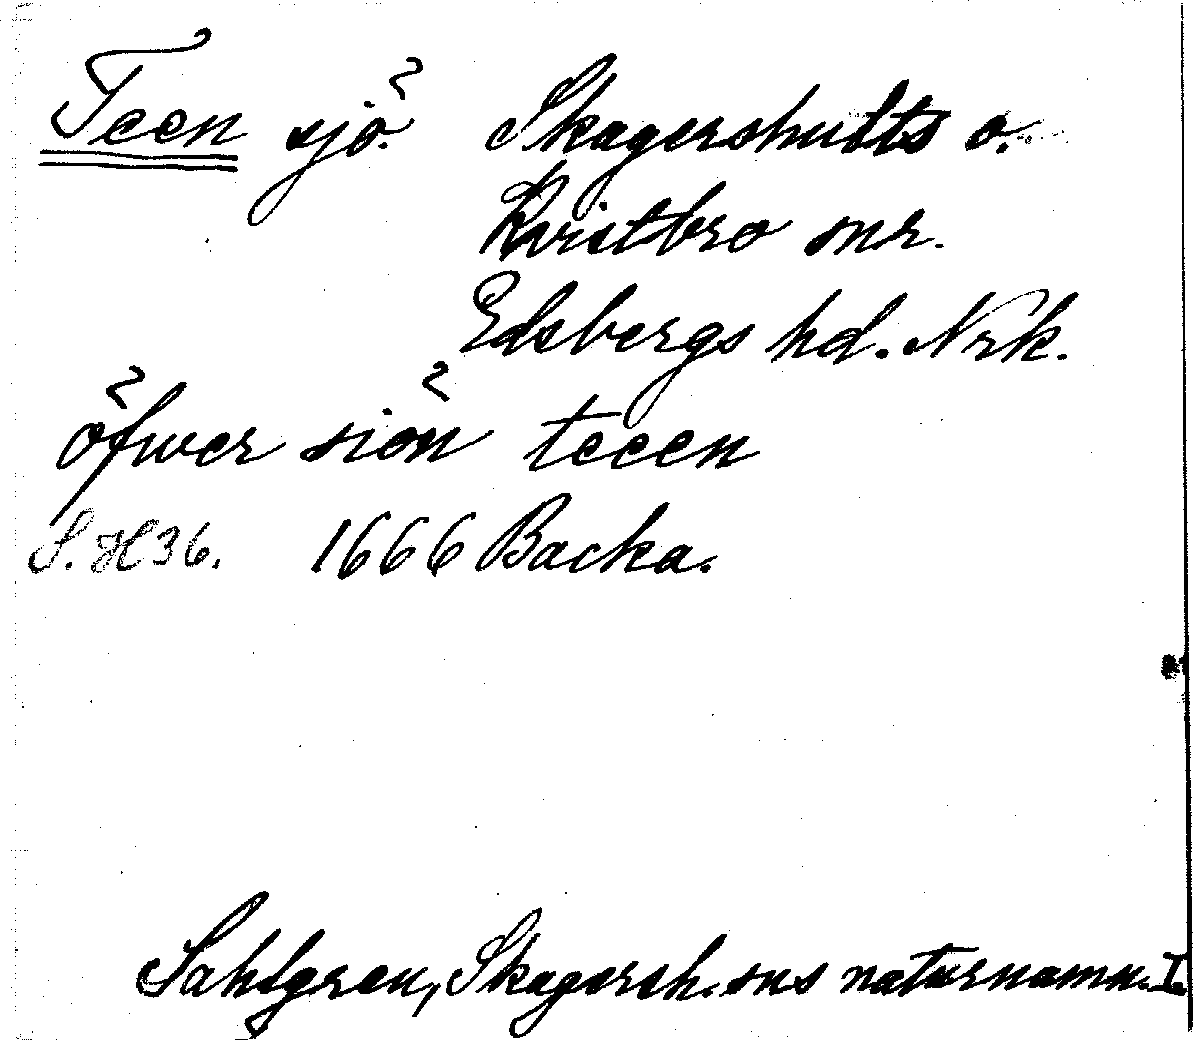 Teen sjö. Skagershults o.
Kvistbro snr.
Edsbergs hd. Nrk.
öfwer siön teeen
S. H 36. 1666 Backa.
Sahlgren, Skagersh. sns naturnamn. I.